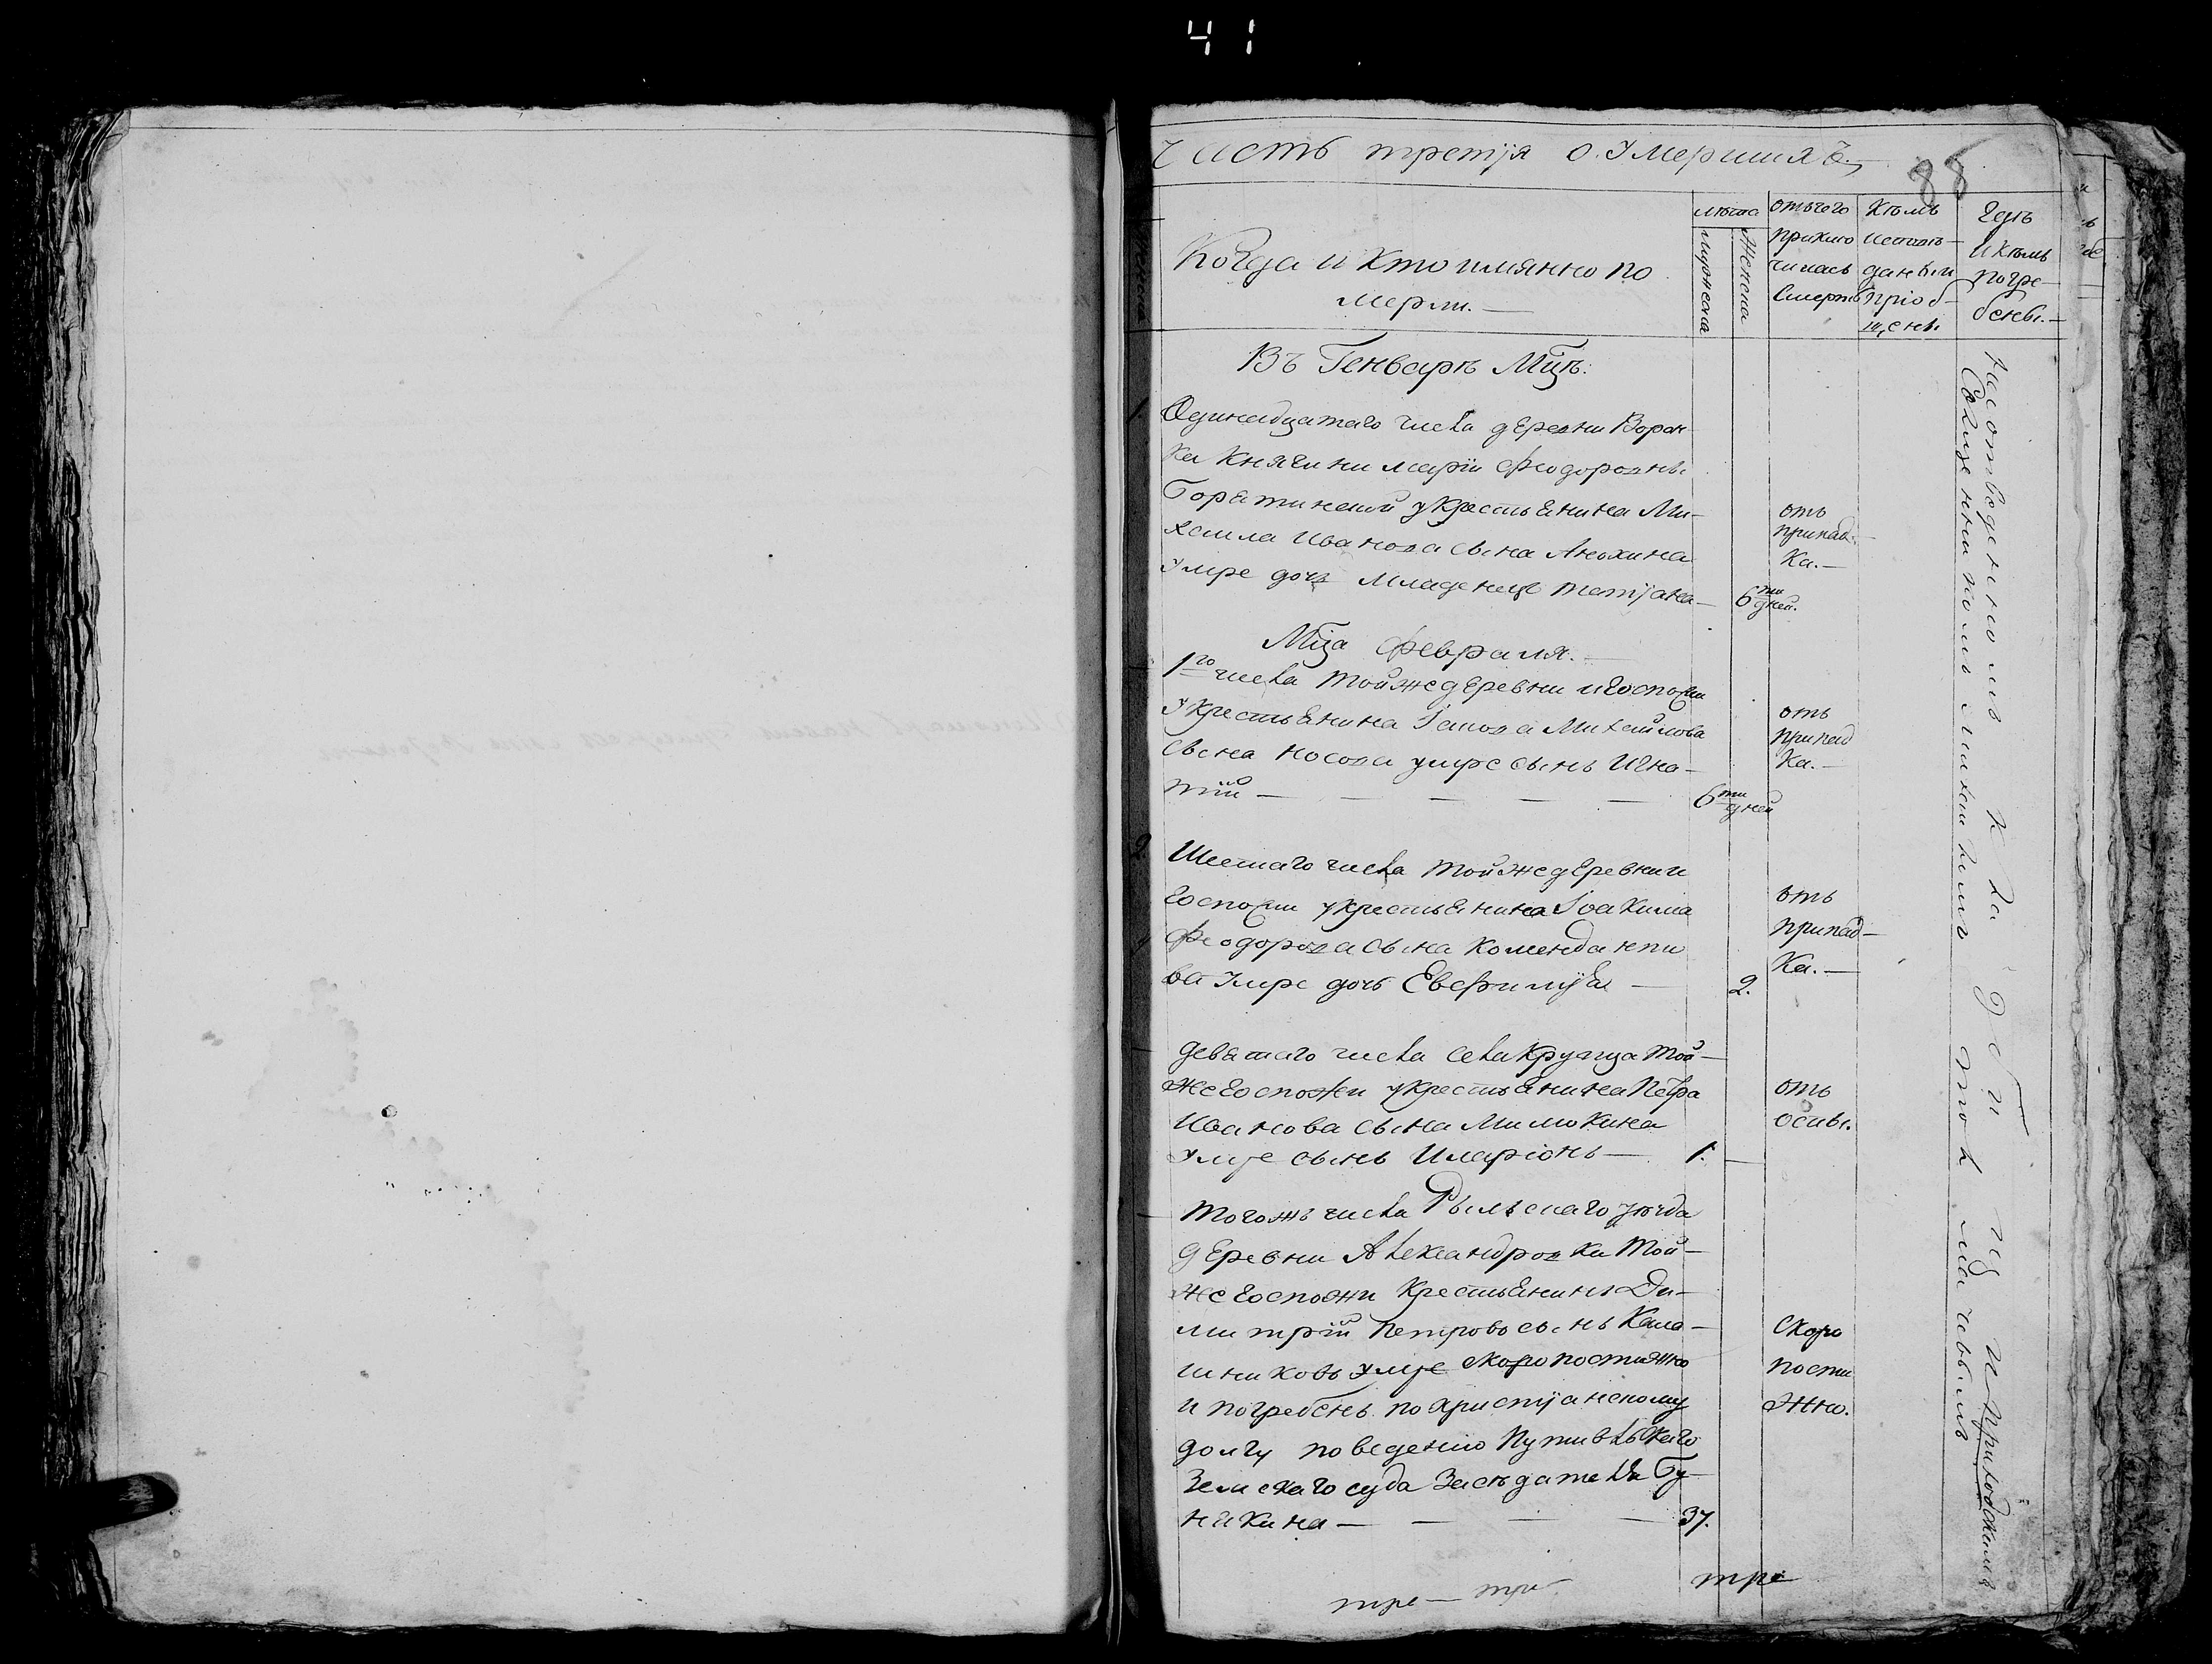 41
Часть третїя о Умершихъ.
86
Когда и кто имянно по
мерли. —
лѣта
мужеска
Женска
отъ чего
приклю
чилась
смерть
Кѣмъ
исповѣ-
даны и
пріоб-
щены
Гдѣ
и кѣмъ
погре-
бены. —
Въ Генварѣ Мцѣ:
Одинадцатаго числа деревни Ворон
ка Княгини Маріи Феодоровны
Борятинской у крестьянина Ми-
хаила Иванова сына Анохина
умре дочь младенецъ Татїана —
6 ти дней.
отъ
припад-
ка. —
Мца Февраля. —
1го числа той же деревни и госпожи
у крестьянина Іакова Михайлова
сына Носова умре сынъ Игна-
тїй — — — — —
6 ти дней
отъ
припад
ка. —
2
Шестаго числа той же деревни и
госпожи у крестьянина Іоакима
Феодорова сына Коменданти
ва умре дочь Евфимїя —
2.
отъ
припад-
ка. —
Девятаго числа села Крупца той-
же госпожи у крестьянина Петра
Иванова сына Милюкина
умре сынъ Иларіонъ —
1. —
отъ
оспы.
Тогожъ числа Рыльскаго уѣзда
деревни Александровки той-
же госпожи крестьянинъ Ди-
митрїй Петровъ сынъ Кала-
шниковъ умре скоропостижно
и погребенъ по христїанскому
долгу по веденїю Путивльскаго
Земскаго суда Засѣдателя Бу-
някина — — — —
37.
Скоро
пости
жно.
На отведенномъ кладбищѣ приходскимъ
Священникомъ
тре — тре
тре